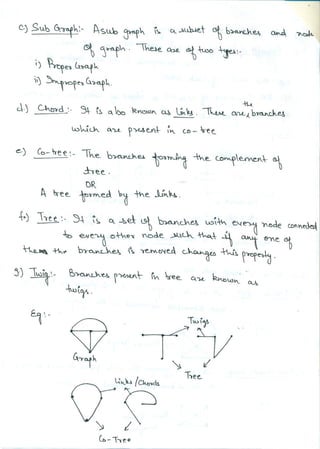 c) Sub Graph :- A sub graph is a subset of branches and node
of graph. These are of two types:-
i) Proper Graph
ii) Improper Graph.
d) Chord :- It is also known as Links. These are the branches
which are present in co-tree
e) Co-tree :- The branches forming the complement of
tree.
OR
A tree formed by the links.
f) Tree :- It is a set of branches with every node connected
to every other node such that if any one of
the branches is removed changes this property.
g) Twig :- Branches present in tree are known as
twigs.
Eg :-
Twigs
Graph
Tree
Links / Chords
Co-Tree